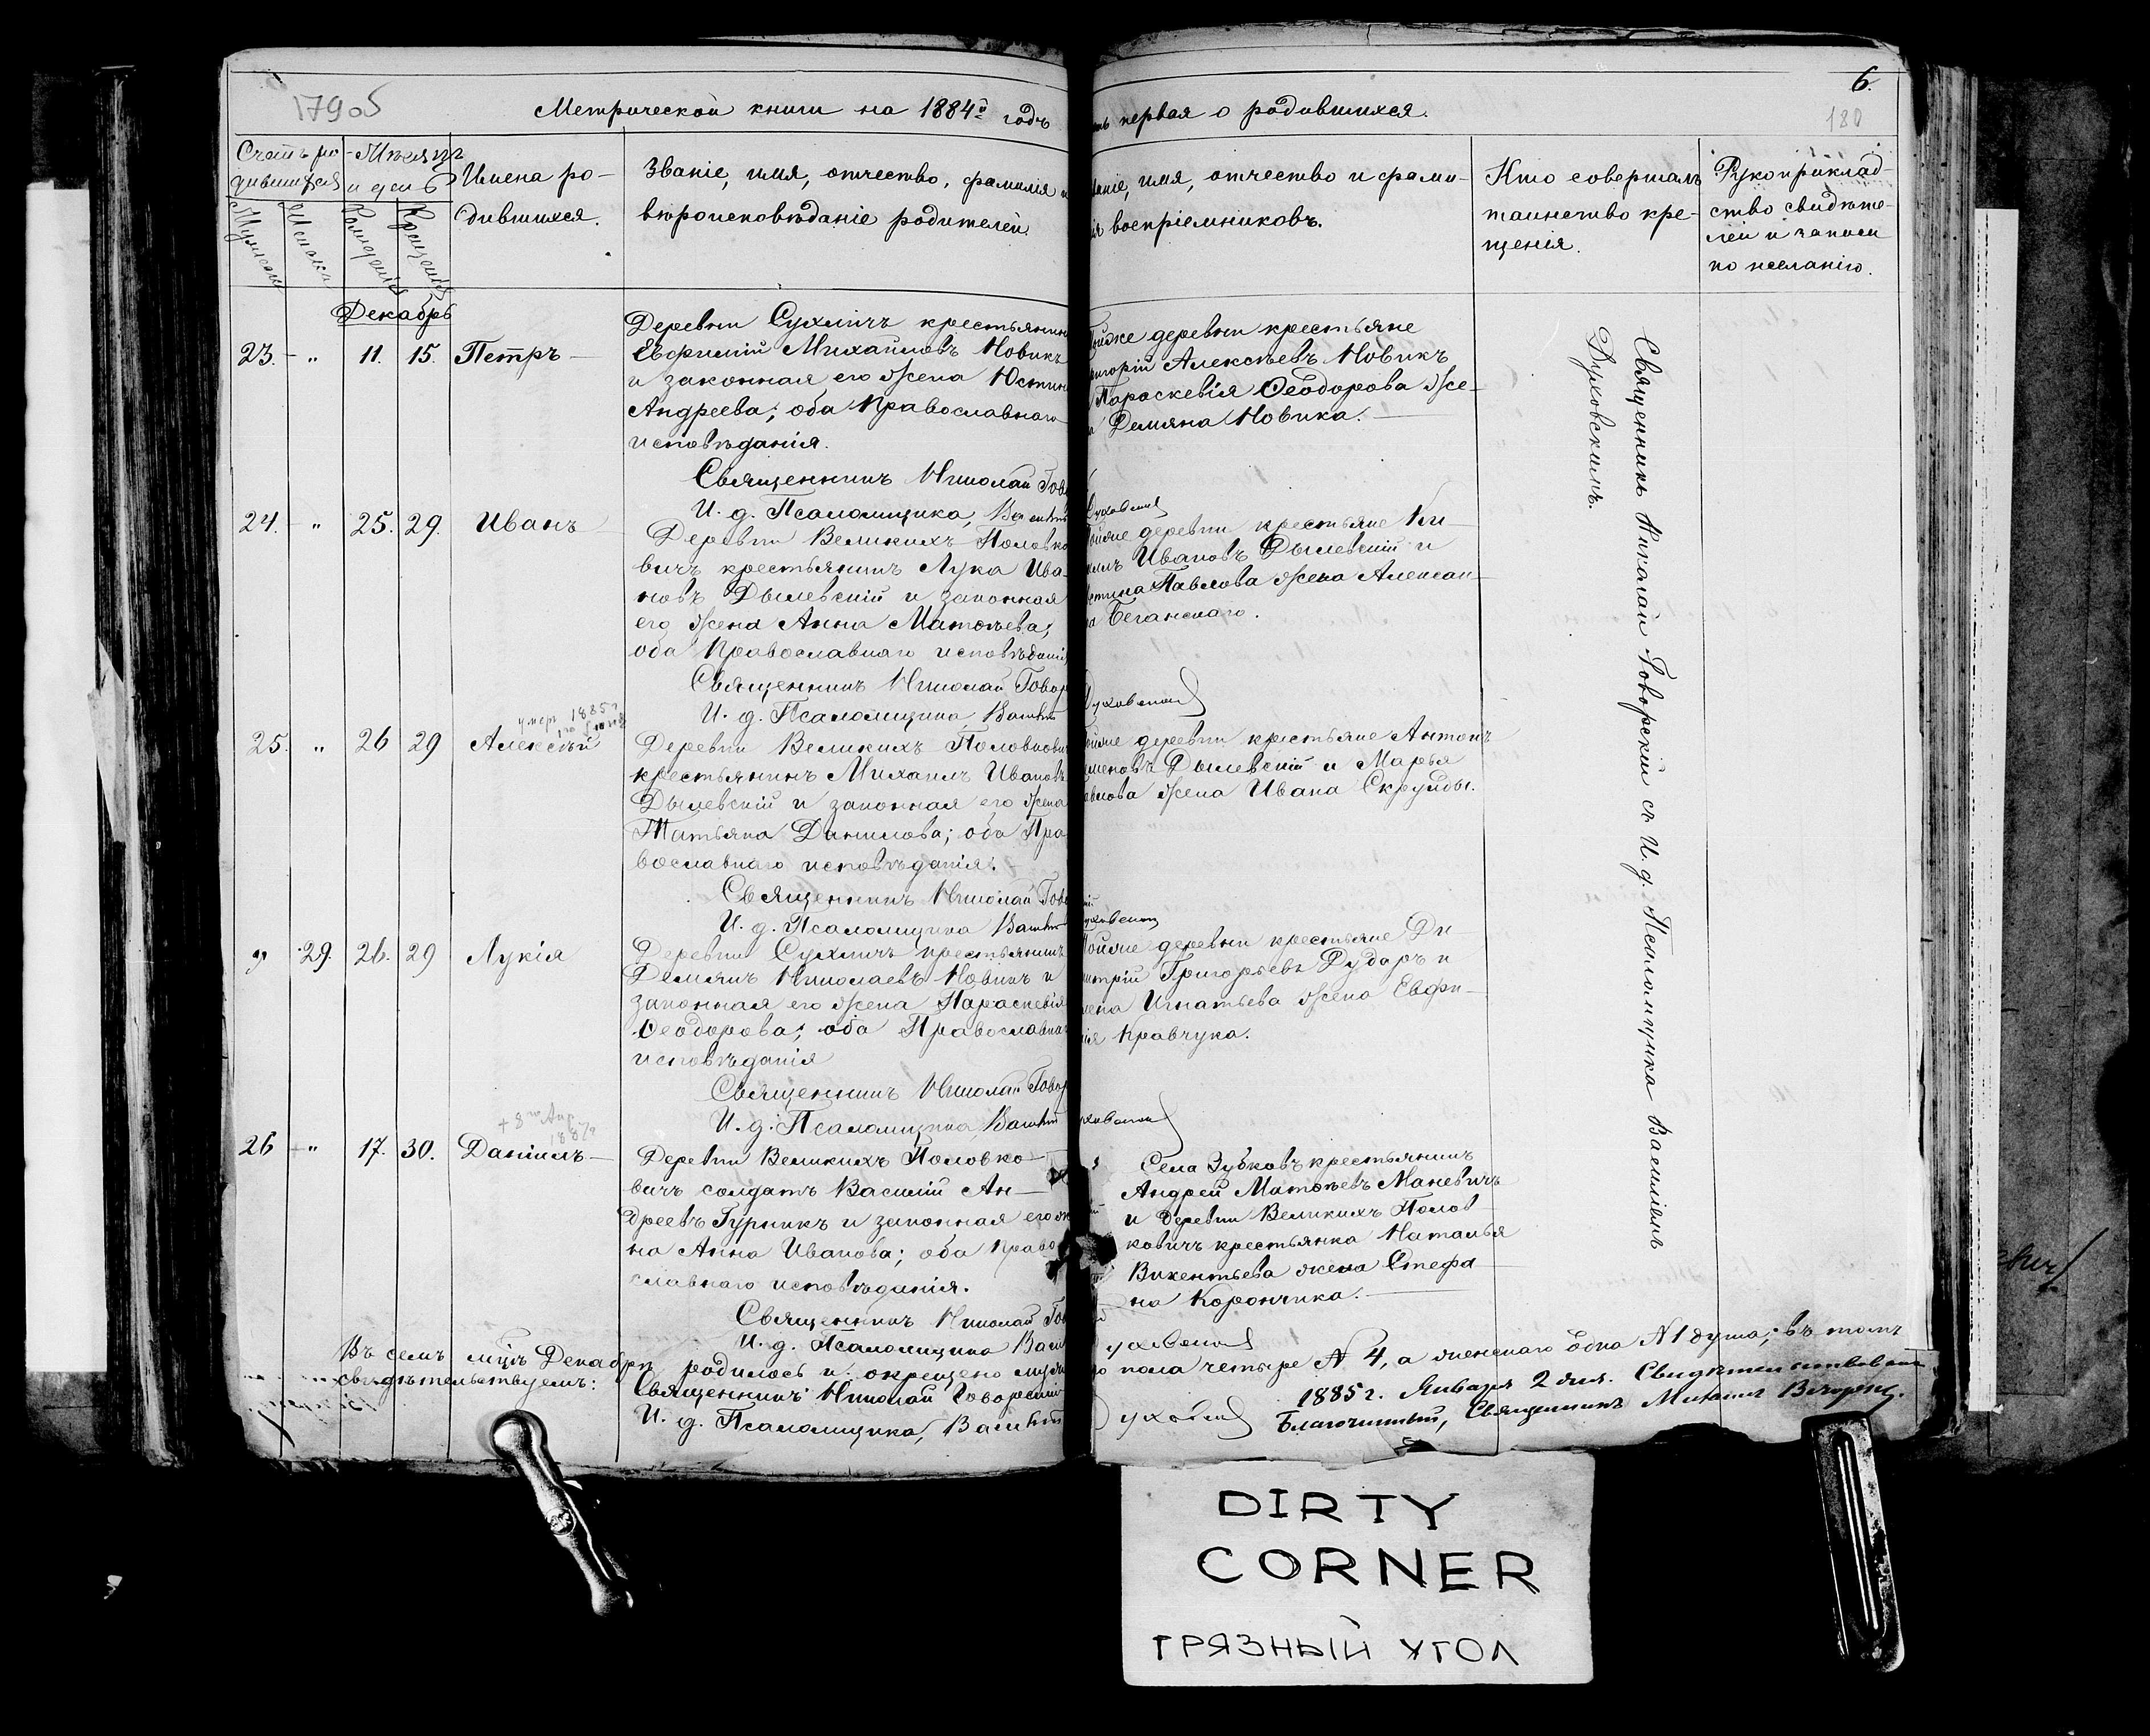 179об
6.
180
Метрической книги на 1884й годъ
первая о родившихся.
Счетъ ро-
дившихся
Мѣсяцъ
и день
Имена ро-
дившихся.
Званіе, имя, отчество, фамилія и
вѣроисповѣданіе родителей
имя, отчество и фами-
воспріемниковъ.
Кто совершалъ
таинство кре-
щенія.
Рукоприклад-
ство свидѣте-
лей и записи
по желанію.
Мужеска
Женска
Рожденія
Крещенія
Декабрь
23. - " 11. 15. Петръ -
Деревни Сухличъ крестьянинъ
Евфимій Михайловъ Новикъ
и законная его жена Юстин
Андреева; оба Православнаго
исповѣданія.
Священникъ Николай Гов
И. д. Псаломщика, Васил
деревни крестьяне
Алексѣевъ Новикъ
Параскевія Ѳеодорова же-
Демяна Новика. -
24. - " 25. 29. Иванъ
Деревни Великихъ Половко
вичъ крестьянинъ Лука Ива-
новъ Дылевскій и законная
его жена Анна Матѳѣева;
оба Православнаго исповѣданія
Священникъ Николай Говор
И. д. Псаломщика, Васил
Духовской
деревни крестьяне Ки-
Ивановъ Дылевскій и
Павлова жена Алексан-
Беганскаго.
Духовской
25. " 26 29 Алексѣй
умеръ 1885г
Деревни Великихъ Половкович
крестьянинъ Михаилъ Ивановъ
Дылевскій и законная его жена
Татьяна Данилова; оба Пра-
вославнаго исповѣданія.
Священникъ Николай Гово
И. д. Псаломщика Васил
деревни крестьяне Антонъ
Дылевскій и Марья
жена Ивана Скрунды.
" 29. 26. 29 Лукія
Деревни Сухличъ крестьянинъ
Демянъ Николаевъ Новикъ и
законная его жена Параскевія
Ѳеодорова; оба Православнаг
исповѣданія
Священникъ Николай Говор
И. д. Псаломщика, Васил
деревни крестьяне Ди-
митрій Григорьевъ Дударъ и
Игнатьева жена Евфи-
мія Кравчука.
+ 8го Апр.
26 - " 17. 30. Даніилъ -
Деревни Великихъ Половко-
вичъ солдатъ Василій Ан-
дреевъ Гурникъ и законная его же
на Анна Иванова; оба Право
славнаго исповѣданія.
Священникъ Николай Гов
И. д. Псаломщика Васил
Села Зубковъ крестьянинъ
Андрей Матѳѣевъ Маневичъ
и деревни Великихъ Полов-
ковичъ крестьянка Наталья
Викентьева жена Стефа-
на Корончика. -
Священникъ Николай Говорскій съ И. д. Псаломщика Василіемъ
Духовскимъ.
Въ семъ мцѣ Декабрѣ родилось и окрещено муж
пола четыре N 4, а женскаго одна N 1 душа; въ томъ
свидѣтельствуемъ:
Священникъ Николай Говорскій
И. д. Псаломщика, Васил
1885г. Января 2 дня. Свидѣтельствовалъ
Благочинный, Священникъ Михаилъ
DIRTY
CORNER
ГРЯЗНЫЙ УГОЛ